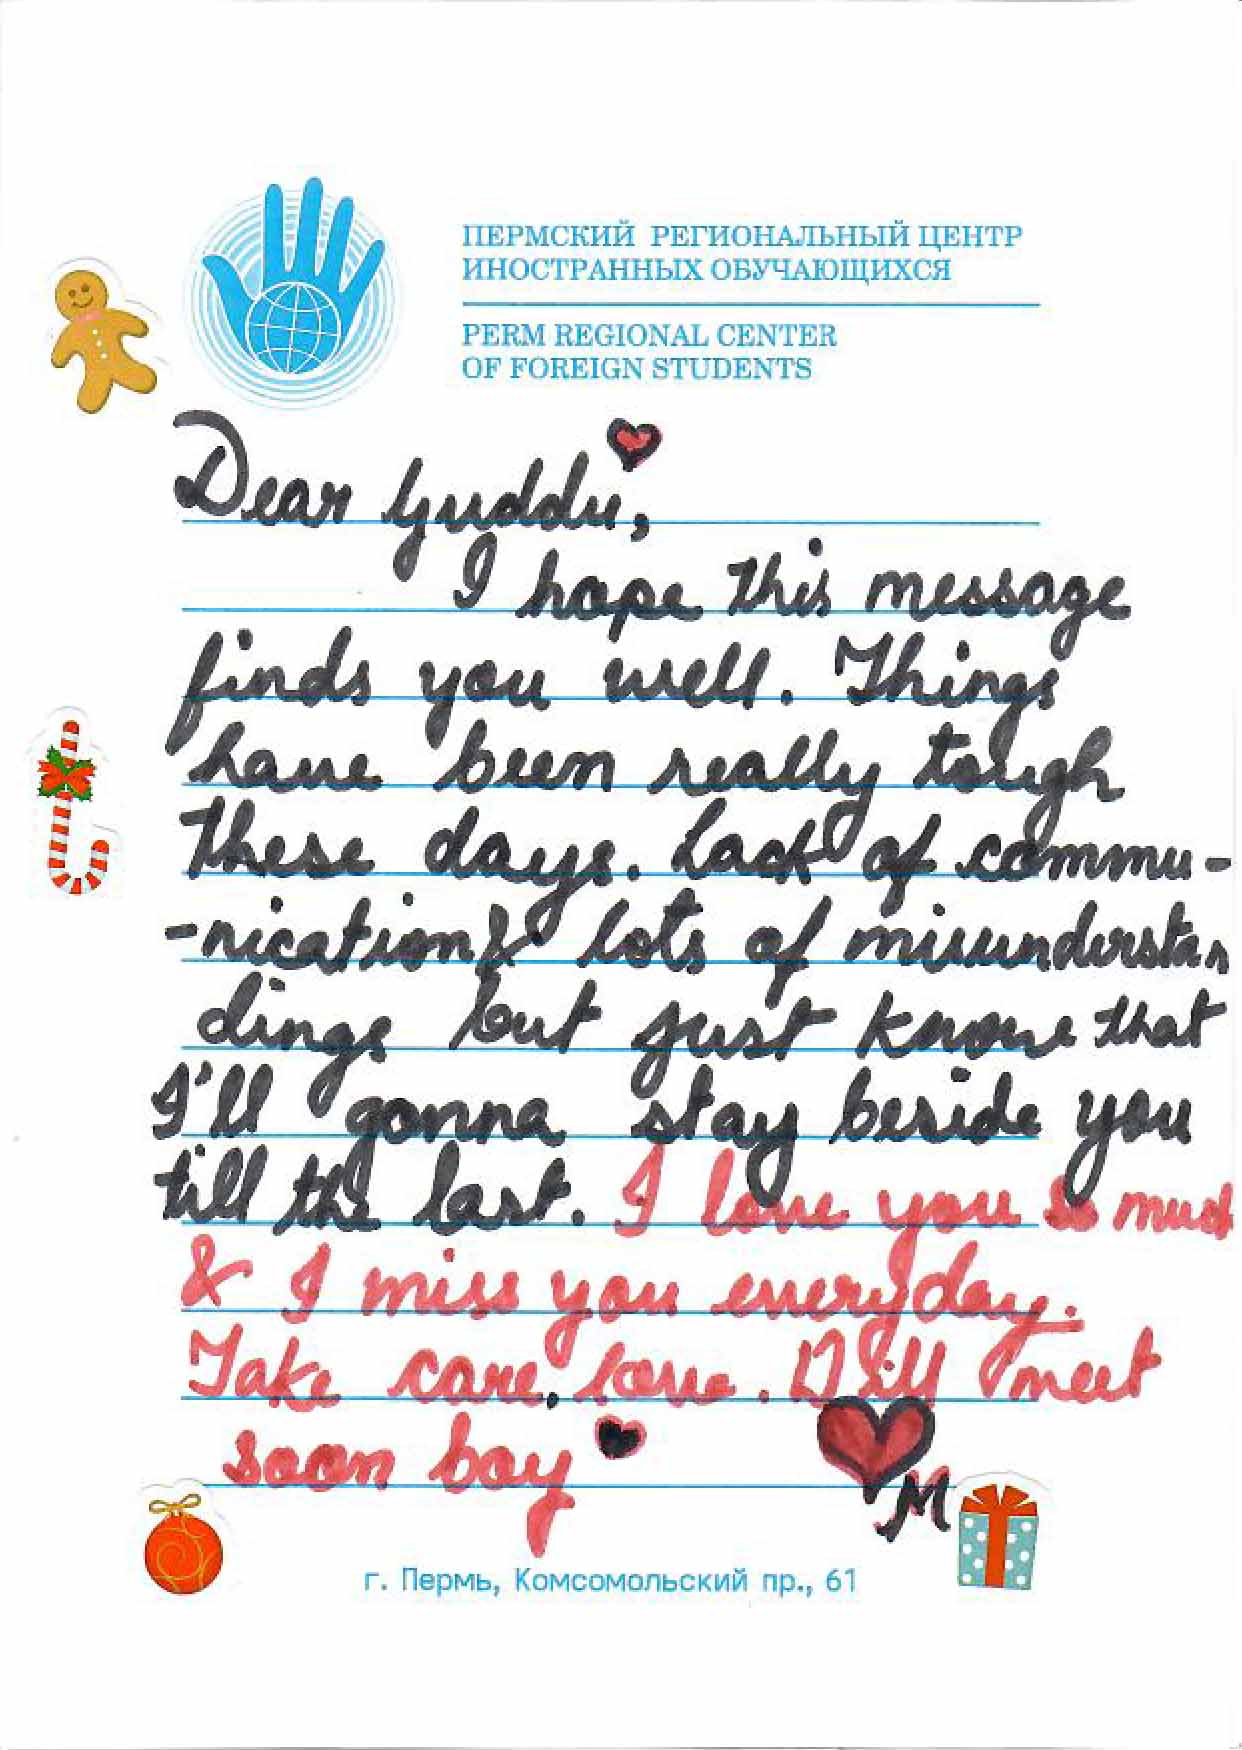 ПЕРМСКИЙ РЕГИОНАЛЬНЫЙ ЦЕНТР
ИНОСТРАННЫХ ОБУЧАЮЩИХСЯ
PERM REGIONAL CENTER
OF FOREIGN STUDENTS
Dear Guddu,
I hope this message
finds you well. Things
have been really tough
these days. Lack of commu-
-nication & lots of misunderstan
dings but just know that
I'll gonna stay beside you
till the last. I love you so much
& I miss you everyday.
Take care love. Will meet
soon boy
M
г. Пермь, Комсомольский пр., 61